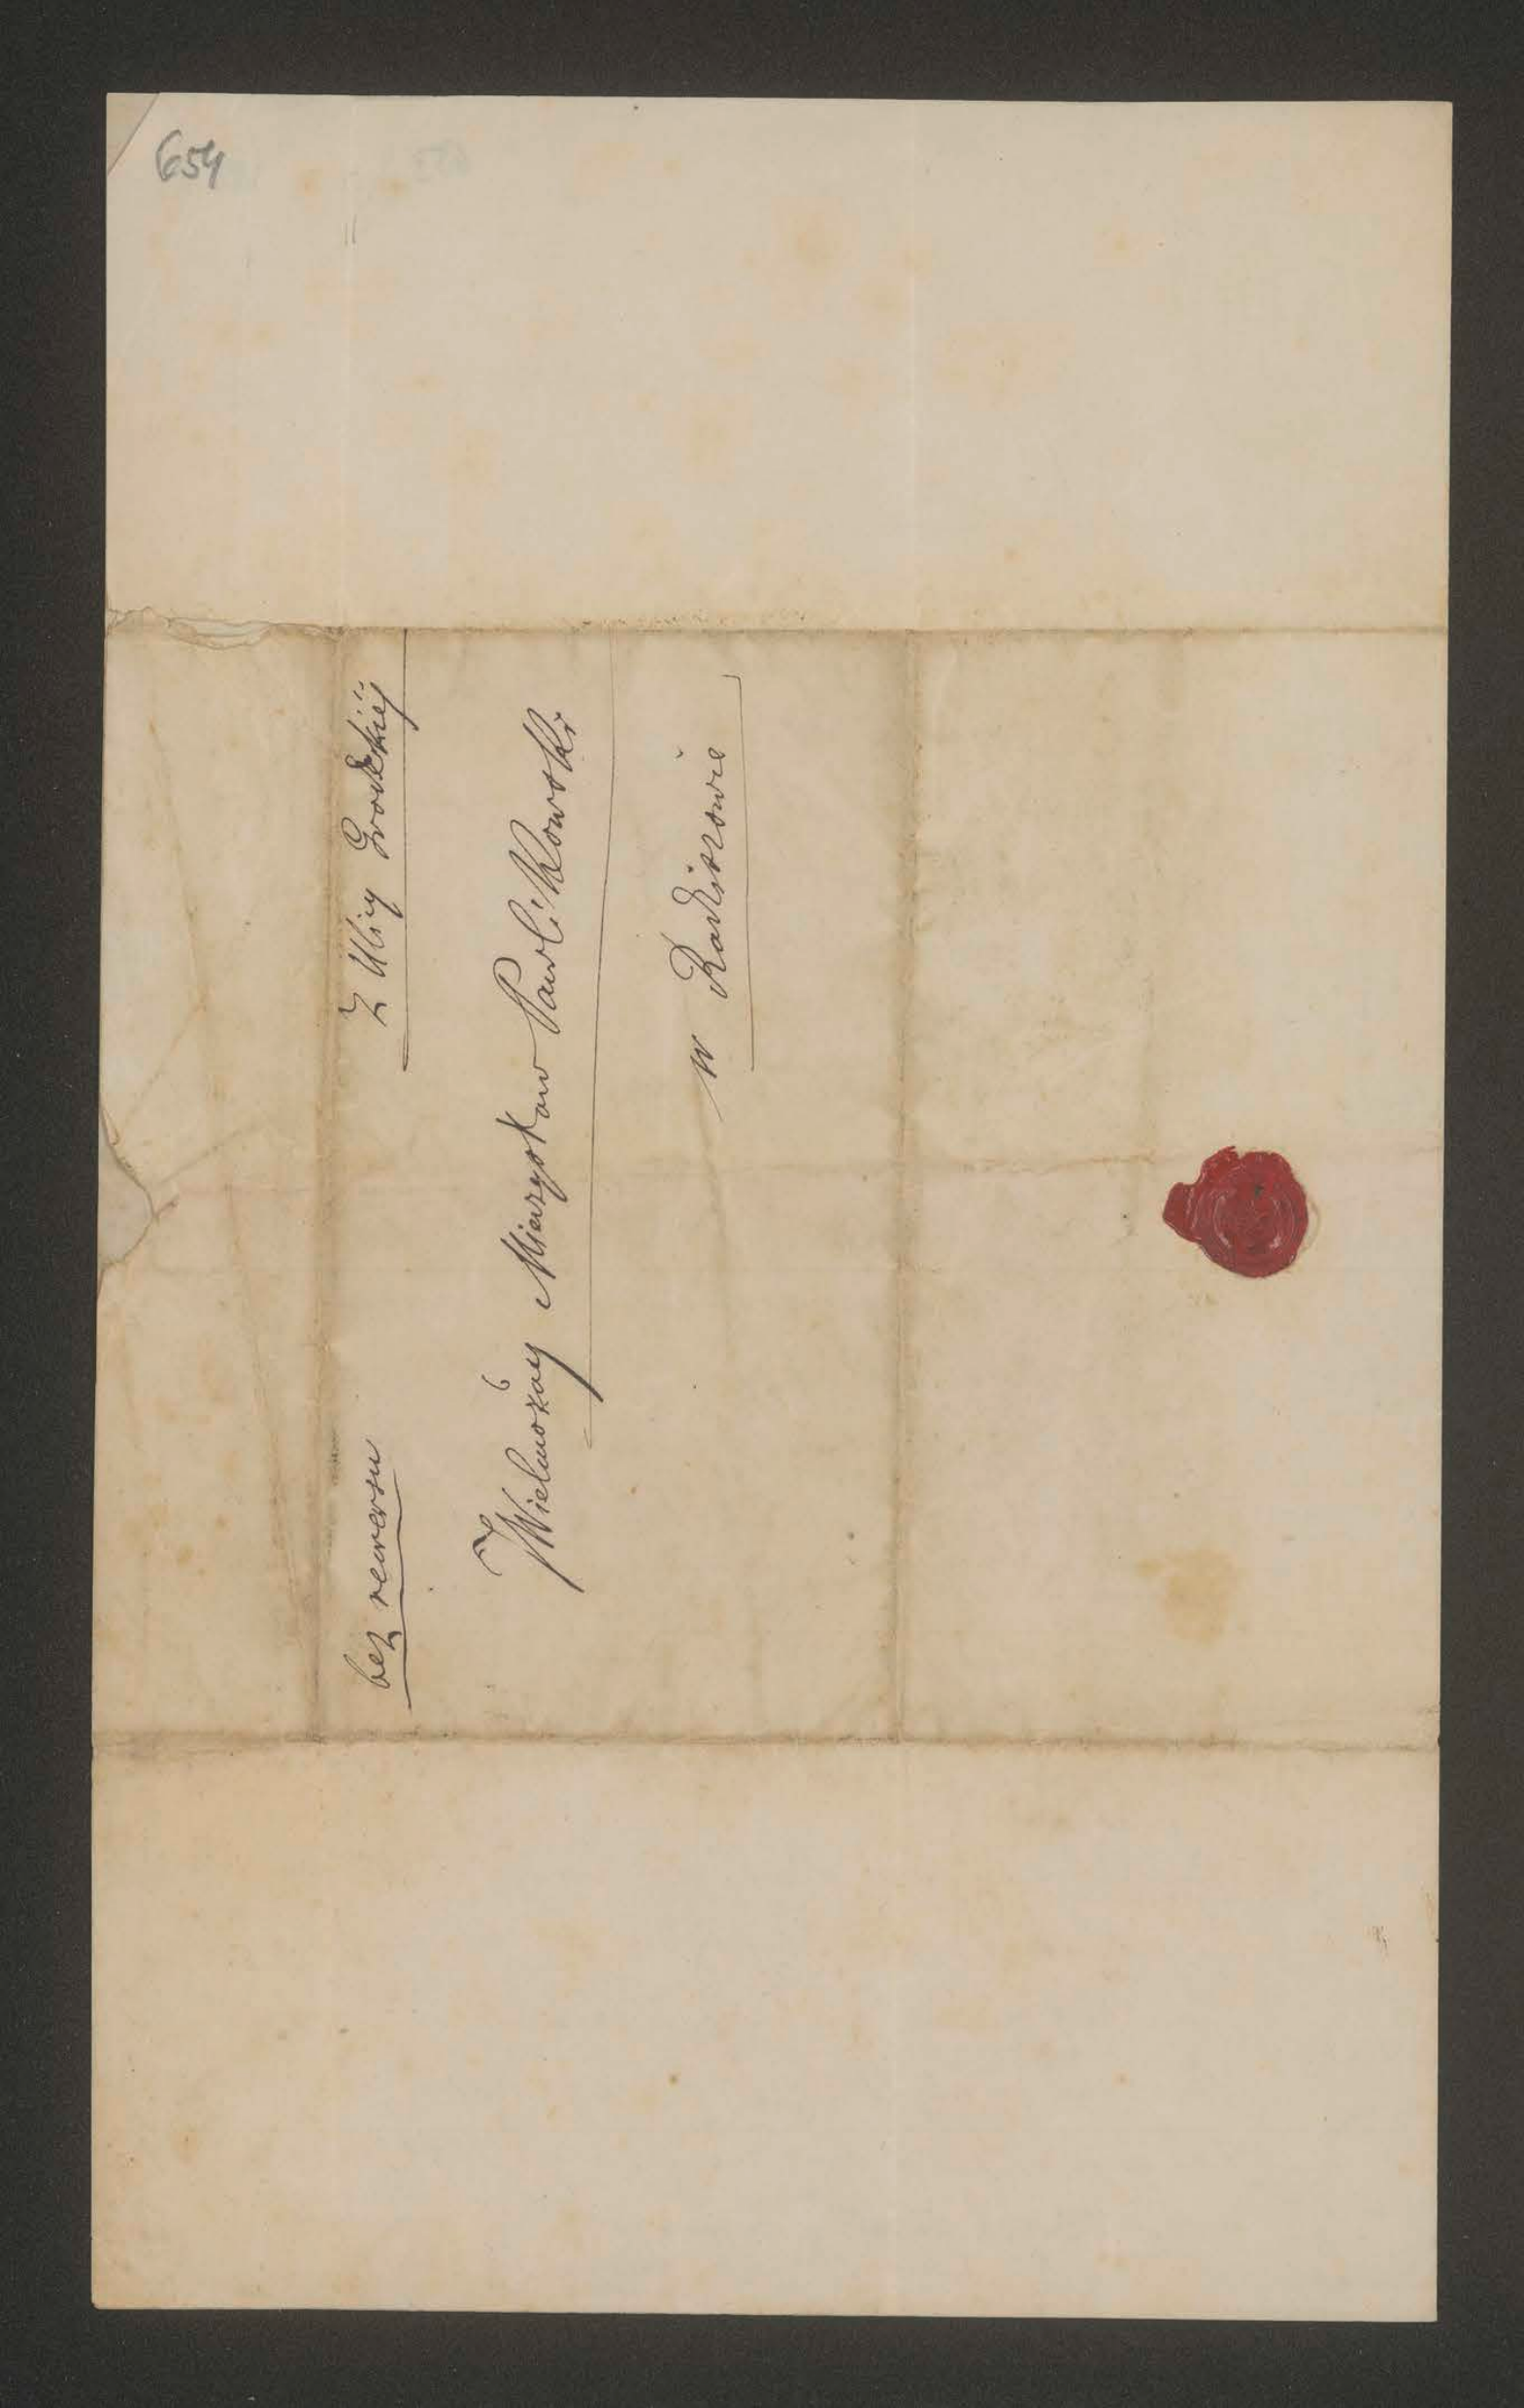 654
bez rewersu
Z Ulicy Grodzkiéj
JWielmożny Mieczysław Pawlikowski
w Radiszowie